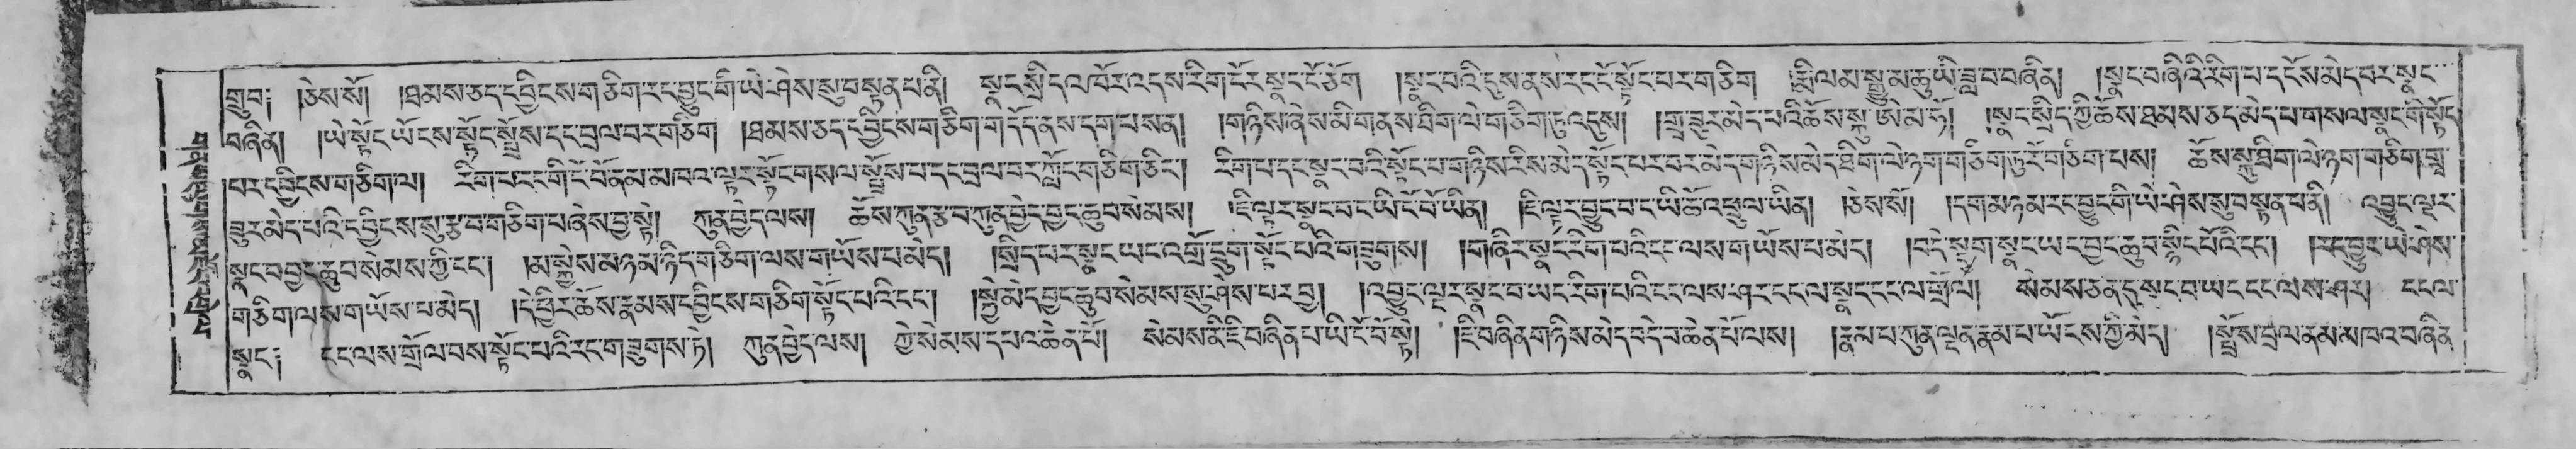 གྲུབ༔ །ཅེས་སོ། །ཐམས་ཅད་དབྱིངས་གཅིག་རང་བྱུང་གི་ཡེ་ཤེས་སུ་བསྟན་པ་ནི། སྣང་སྲིད་འཁོར་འདས་རིག་ངོར་སྣང་ངོ་ཅོག །སྣང་བའི་དུས་ནས་རང་ངོ་སྟོང་པར་གཅིག །རྨི་ལམ་སྒྱུ་མ་ཆུ་ཡི་ཟླ་བ་བཞིན། །སྣང་བཞི་རིག་པ་དངོས་མེད་བར་སྣང་
བཞིན། །ཡེ་སྟོང་ཡོངས་སྟོང་སྤྲོས་དང་བྲལ་བར་གཅིག །ཐམས་ཅད་དབྱིངས་གཅིག་གདོད་ནས་དག་པས་ན། །གཉིས་ཞེས་མི་གནས་ཐིག་ལེ་གཅིག་ཏུ་འདུས། །གྲུ་ཟུར་མེད་པའི་ཆོས་སྐུ་ཨེ་མ་ཧོ། །སྣང་སྲིད་ཀྱི་ཆོས་ཐམས་ཅད་མེད་པ་གསལ་སྣང་གི་སྟོང་
པར་དབྱིངས་གཅིག་ལ། རིག་པ་རང་གི་ངོ་བོ་ནམ་མཁའ་ལྟར་སྟོང་གསལ་སྤྲོས་པ་དང་བྲལ་བར་ཀློང་གཅིག་ཅིང་། རིག་པ་དང་སྣང་བའི་སྟོང་པ་གཉིས་རིས་མེད་སྟོང་པར་བར་མེད་གཉིས་མེད་ཐིག་ལེ་ཉག་གཅིག་ཏུ་རོ་གཅིག་པས། ཆོས་སྐུ་ཐིག་ལེ་ཉག་གཅིག་གྲུ་
ཟུར་མེད་པའི་དབྱིངས་སུ་རྩ་བ་གཅིག་པ་ཞེས་བྱ་སྟེ། ཀུན་བྱེད་ལས། ཆོས་ཀུན་རྩ་བ་ཀུན་བྱེད་བྱང་ཆུབ་སེམས། ཇི་ལྟར་སྣང་བ་ང་ཡི་ངོ་བོ་ཡིན། ཇི་ལྟར་བྱུང་བ་ང་ཡི་ཆོ་འཕྲུལ་ཡིན། །ཅེས་སོ། །དག་མཉམ་རང་བྱུང་གི་ཡེ་ཤེས་སུ་བསྟན་པ་ནི། འབྱུང་ལྔར་
སྣང་བ་བྱང་ཆུབ་སེམས་ཀྱི་ངང་། །མ་སྐྱེས་མཉམ་ཉིད་གཅིག་ལས་གཡོས་པ་མེད། །སྲིད་པར་སྣང་ཡང་འགྲོ་དྲུག་སྟོང་པའི་གཟུགས། །གཞིར་སྣང་རིག་པའི་ངང་ལས་གཡོས་པ་མེད། །བདེ་སྡུག་སྣང་ཡང་བྱང་ཆུབ་སྙིང་པོའི་ངང་། །རང་བྱུང་ཡེ་ཤེས་
གཅིག་ལས་གཡོས་པ་མེད། །དེ་ཕྱིར་ཆོས་རྣམས་དབྱིངས་གཅིག་སྟོང་པའི་ངང་། །སྐྱེ་མེད་བྱང་ཆུབ་སེམས་སུ་ཤེས་པར་བྱ། །འབྱུང་ལྔར་སྣང་བ་ཡང་རིག་པའི་ངང་ལས་ཤར་ངང་ལ་སྣང་ངང་ལ་གྲོལ། སེམས་ཅན་དུ་སྣང་བ་ཡང་ངང་ལས་ཤར། ངང་ལ་
སྣང་༔ ངང་ལས་གྲོལ་བས་སྟོང་པའི་རང་གཟུགས་ཏེ། ཀུན་བྱེད་ལས། ཀྱེ་སེམས་དཔའ་ཆེན་པོ། སེམས་ནི་ཇི་བཞིན་པ་ཡི་ངོ་བོ་སྟེ། །ཇི་བཞིན་གཉིས་མེད་བདེ་བ་ཆེན་པོ་ལས། །རྣམ་པ་ཀུན་ལྡན་རྣམ་པ་ཡོངས་ཀྱི་མེད། །སྤྲོས་བྲལ་ནམ་མཁའ་བཞིན